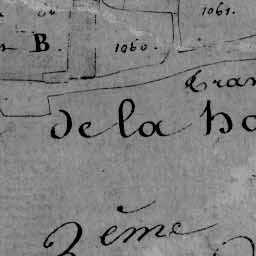 1061.
B.
1060.
Gran
de la
2ème